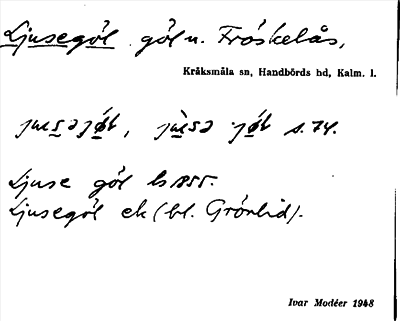 Ljusegöl göl n. Fröskelås,
Kråksmåla sn, Handbörds hd, Kalm. l.
jusəjöl, jusə jöl s. 74.
Ljuse göl ls 1855.
Ljusegöl ek (bl. Grönlid).
Ivar Modéer 1948